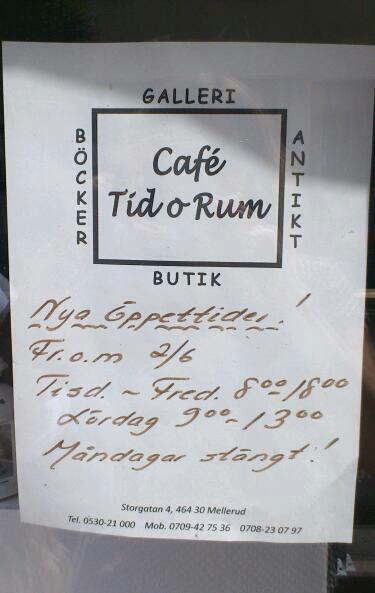 GALLERI
BÖCKER
Café
Tid o Rum
ANTIKT
BUTIK
Nya Öppettider!
Fr.o.m 2/6
Tisd. ~ Fred. 8⁰⁰-18⁰⁰
Lördag 9⁰⁰-13⁰⁰
Måndagar stängt!
Storgatan 4, 464 30 Mellerud
Tel. 0530-21 000 Mob. 0709-42 75 36 0708-23 07 97